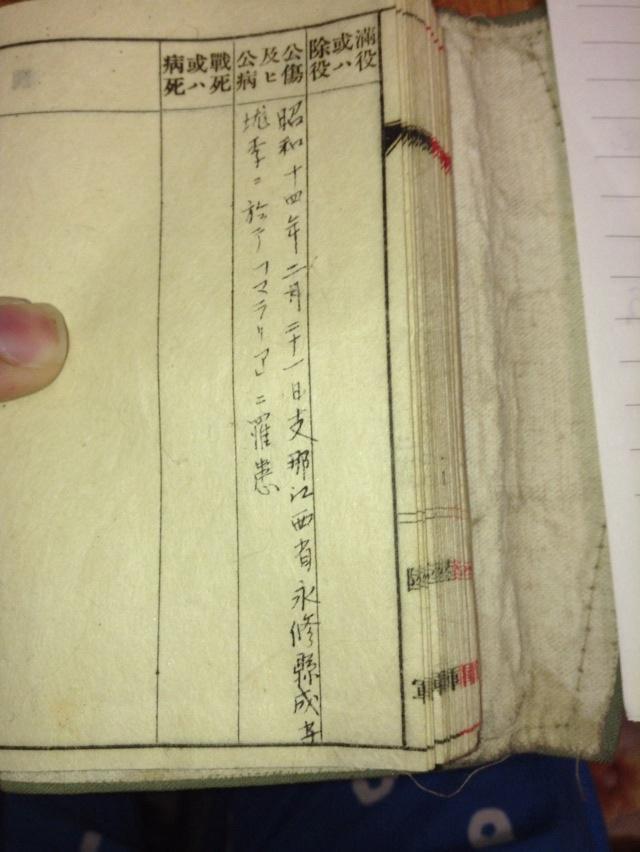 滿役
或ハ
除役
公傷
及ヒ
公病
昭和十四年二月二十一日支那江西省永修縣成
李ニ於テ「マラリア」ニ罹患
戰死
或ハ
病死